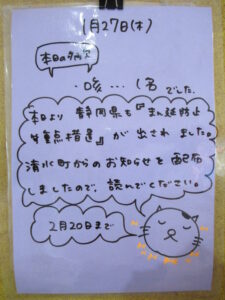 1月27日(木)
本日の病欠
・咳…1名 でした。
本日より 静岡県も『まん延防止
等重点措置』が出されました。
清水町からのお知らせを配布
しましたので、読んでください。
2月20日まで